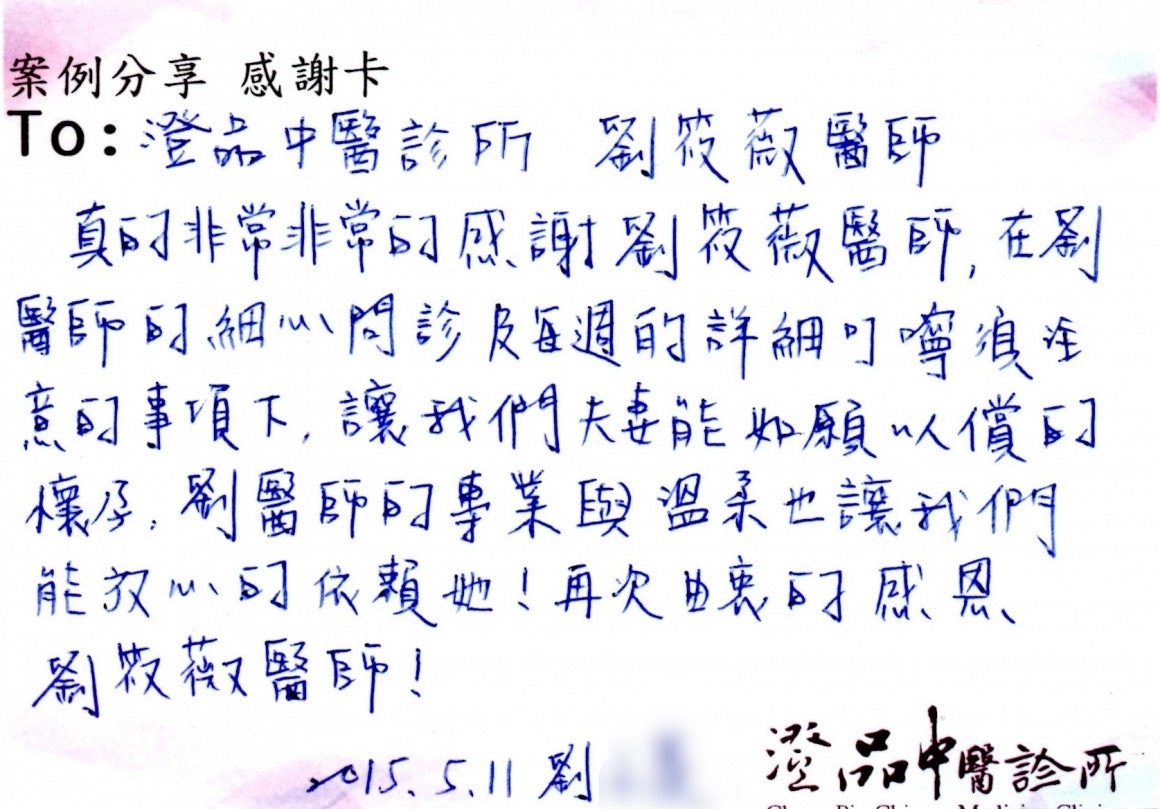 案例分享 感謝卡
To: 澄品中醫診所 劉筱薇醫師
真的非常非常的感謝劉筱薇醫師, 在劉
醫師的細心問診及每週的詳細叮嚀須注
意的事項下, 讓我們夫妻能如願以償的
懷孕, 劉醫師的專業與溫柔也讓我們
能放心的依賴她！再次由衷的感恩
劉筱薇醫師！
2015.5.11 劉
澄品中醫診所